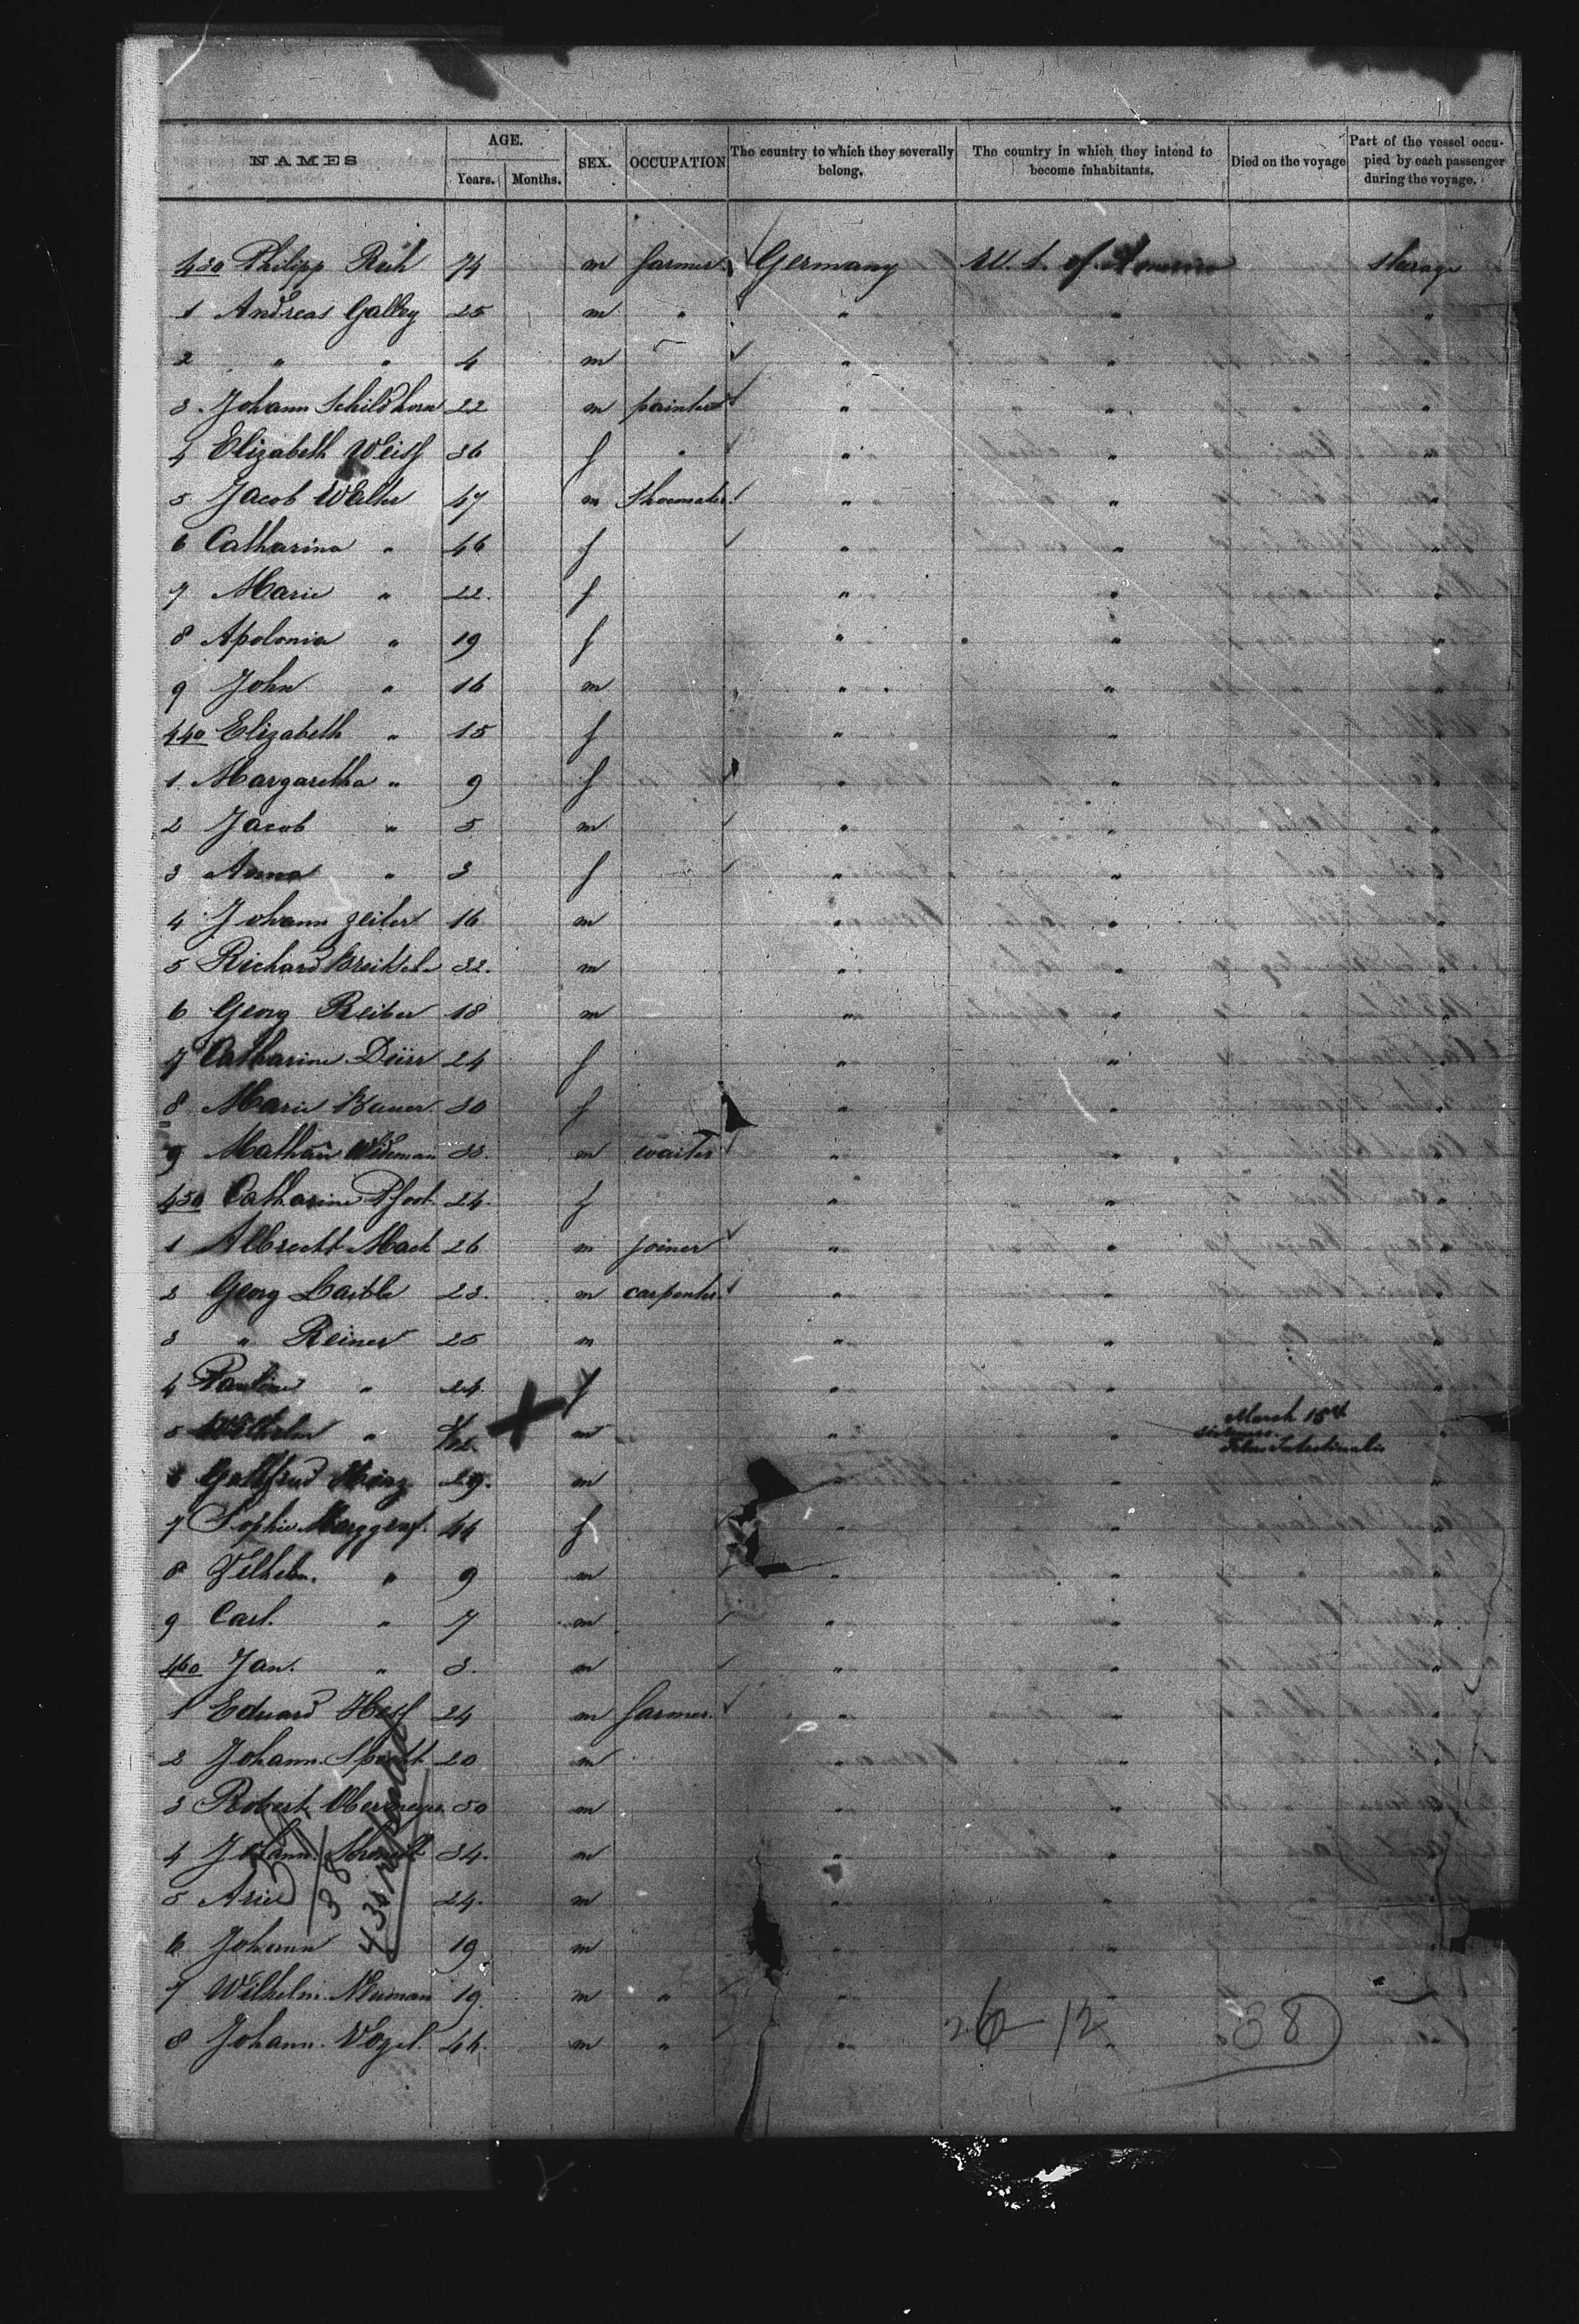 NAMES AGE. Years. Months. SEX. OCCUPATION The country to which they severally belong. The country in which they intend to become inhabitants. Died on the voyage Part of the vessel occupied by each passenger during the voyage.
430 Philipp 74 m farmer Germany U. S. of America
1 Andreas Galley 25 m " " " "
2 " " 4 m " " "
3 Johann Schildhorn 22 m painter " " "
4 Elizabeth Weiss 36 f " " " "
5 Jacob Walter 47 m Shoemaker " " "
6 Catharina " 46 f " " "
7 Marie " 22. f " " "
8 Apolonia " 19 f " " "
9 John " 16 m " " "
440 Elizabeth " 15 f " " "
1 Margaretha " 9 f " " "
2 Jacob " 5 m " " "
3 Anna " 3 f " " "
4 Johann Zeiler 16 m " " "
5 Richard 32. m " " "
6 Georg Reiber 18 m " " "
7 Catharine Dürr 24 f " " "
8 Marie Bauer 30 f " " "
9 33. m waiter " " "
450 Catharine 24. f " " "
1 Albrecht Mack 26 m joiner " " "
2 Georg Laible 23. m carpenter " " "
3 " Reiner 25 m " " "
4 Pauline " 24. f " " "
5 Wilhelm " m " " March 15th "
6 Gottfried 29. m " " "
7 Sophie Marggraf 44 f " " "
8 " 9 m " " "
9 Carl. " 7 m " " "
460 Jan. " 3. m " " "
1 Eduard Hess 24 m farmer. " " "
2 Johann. Specht 20 m " " "
3 Robert Obermeyer 50 m " " "
4 Johann. Schmidt 34. m " " "
5 24. m " " "
6 Johann 19 m " " "
7 Wilhelm. Neuman 19. m " " " "
8 Johann. Vogel. 44. m " " "
26 12 38
38